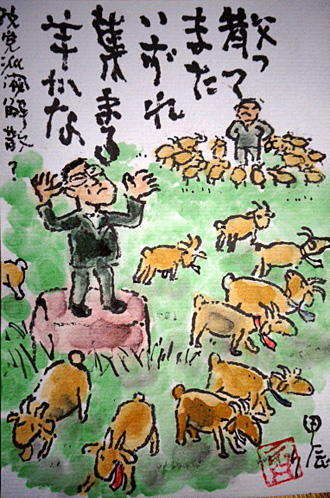 散って
また
いずれ
集まる
羊かな
政党派閥解散?
甲辰